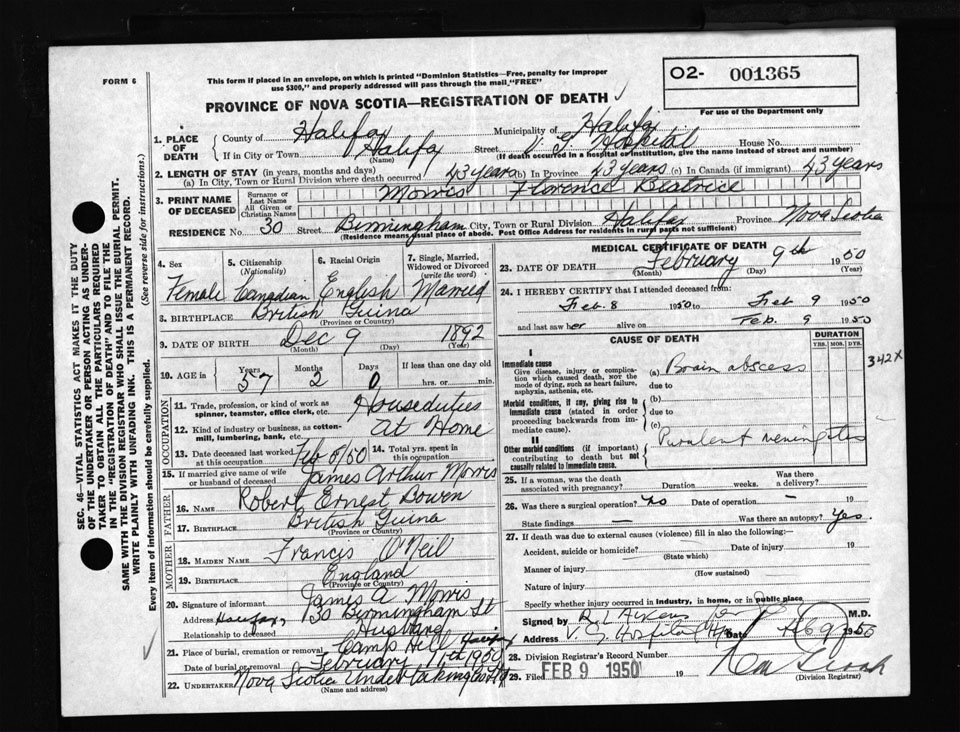 FORM 6
This form if placed in an envelope, on which is printed "Dominion Statistics—Free, penalty for improper
use $300," and properly addressed will pass through the mail "FREE"
O2- 001365
For use of the Department only
PROVINCE OF NOVA SCOTIA—REGISTRATION OF DEATH
1. PLACE OF DEATH
County of Halifax Municipality of Halifax
If in City or Town Halifax Street V. G. Hospital House No.
(Name) (If death occurred in a hospital or institution, give the name instead of street and number)
2. LENGTH OF STAY (in years, months and days)
(a) In City, Town or Rural Division where death occurred 43 years (b) In Province 43 years (c) In Canada (if immigrant) 43 years
3. PRINT NAME OF DECEASED
Surname or Last Name Morris
All Given or Christian Names Florence Beatrice
RESIDENCE No. 30 Street Birmingham City, Town or Rural Division Halifax Province Nova Scotia
(Residence means usual place of abode. Post Office Address for residents in rural parts not sufficient)
4. Sex Female
5. Citizenship (Nationality) Canadian
6. Racial Origin English
7. Single, Married, Widowed or Divorced (write the word) Married
8. BIRTHPLACE British Guina
(Province or Country)
9. DATE OF BIRTH Dec 9 1892
(Month) (Day) (Year)
10. AGE in Years 57 Months 2 Days 0
If less than one day old
hrs. or min.
OCCUPATION
11. Trade, profession, or kind of work as spinner, teamster, office clerk, etc. Houseduties
12. Kind of industry or business, as cotton-mill, lumbering, bank, etc. At Home
13. Date deceased last worked at this occupation Feb 6/50
14. Total yrs. spent in this occupation
15. If married give name of wife or husband of deceased James Arthur Morris
FATHER
16. NAME Robert Ernest Bowen
17. BIRTHPLACE British Guina
(Province or Country)
MOTHER
18. MAIDEN NAME Francis O'Neil
19. BIRTHPLACE England
(Province or Country)
20. Signature of informant James A Morris
Address Halifax, 30 Birmingham St
Relationship to deceased Husband
21. Place of burial, cremation or removal Camp Hill Halifax
Date of burial or removal February 11th 1950
22. UNDERTAKER Nova Scotia Undertaking Co Ltd
(Name and address)
MEDICAL CERTIFICATE OF DEATH
23. DATE OF DEATH February 9th 1950
(Month) (Day) (Year)
24. I HEREBY CERTIFY that I attended deceased from:
Feb. 8 1950 to Feb 9 1950
and last saw her alive on Feb. 9 1950
CAUSE OF DEATH
DURATION
YRS. MOS. DYS.
342X
I
Immediate cause
Give disease, injury or complication which caused death, not the mode of dying, such as heart failure, asphyxia, asthenia, etc.
(a) Brain abscess
due to
Morbid conditions, if any, giving rise to immediate cause (stated in order proceeding backwards from immediate cause).
(b)
due to
(c)
II
Other morbid conditions (if important) contributing to death but not causally related to immediate cause.
Purulent meningites
25. If a woman, was the death associated with pregnancy? Duration weeks. Was there a delivery?
26. Was there a surgical operation? No Date of operation – 19
State findings — Was there an autopsy? Yes.
27. If death was due to external causes (violence) fill in also the following:—
Accident, suicide or homicide? Date of injury 19
(State which)
Manner of injury
(How sustained)
Nature of injury
Specify whether injury occurred in Industry, in home, or in public place
Signed by M.D.
Address V. G. Hospital Date Feb 9 1950
28. Division Registrar's Record Number
29. Filed FEB 9 1950 19
(Division Registrar)
SEC. 46—VITAL STATISTICS ACT MAKES IT THE DUTY
OF THE UNDERTAKER OR PERSON ACTING AS UNDERTAKER
TO OBTAIN ALL THE PARTICULARS REQUIRED
IN THE "REGISTRATION OF DEATH" AND TO FILE THE
SAME WITH THE DIVISION REGISTRAR WHO SHALL ISSUE THE BURIAL PERMIT.
WRITE PLAINLY WITH UNFADING INK. THIS IS A PERMANENT RECORD.
Every item of information should be carefully supplied. (See reverse side for instructions.)